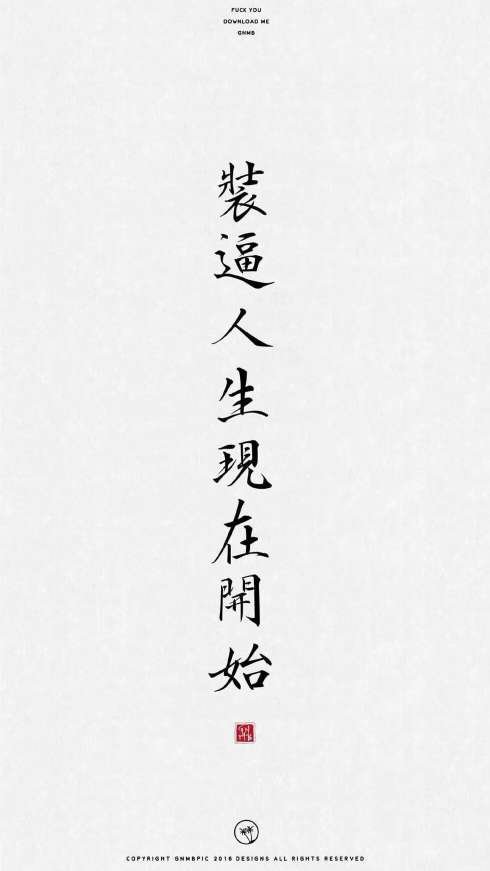 FUCK YOU
DOWNLOAD ME
GNMB
裝逼人生現在開始
COPYRIGHT GNMBPIC 2016 DESIGNS ALL RIGHTS RESERVED